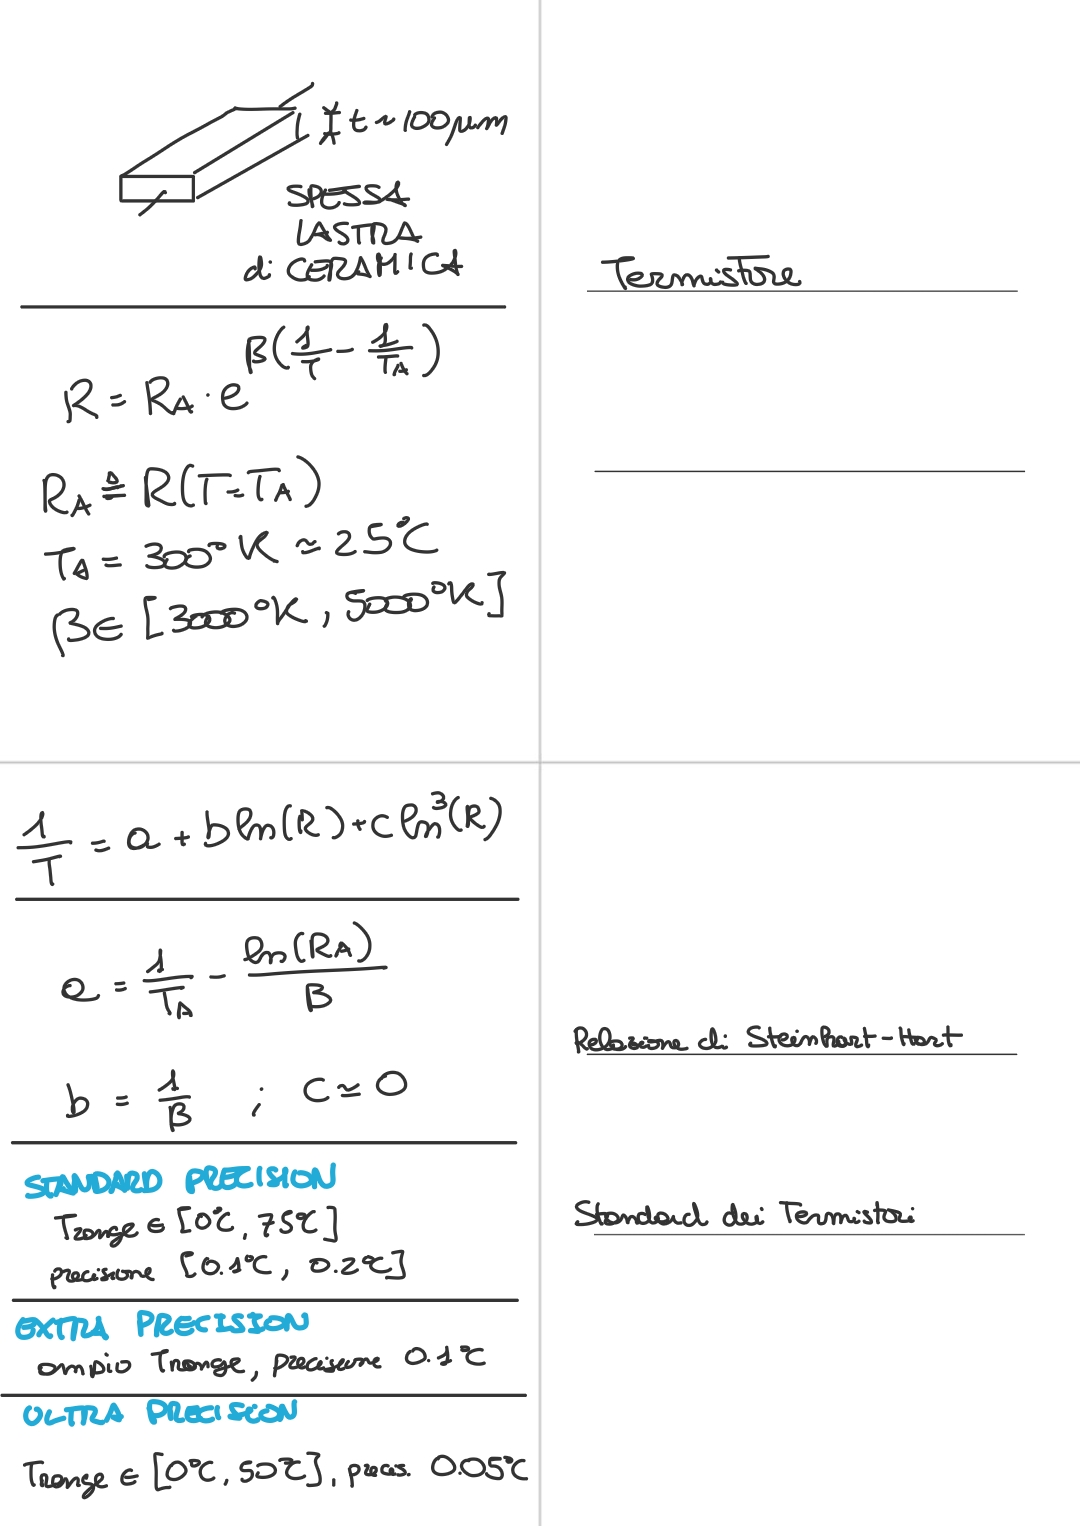 t ~ 100 μm
SPESSA
LASTRA
di CERAMICA
Termistore
R = R_A · e^{β(1/T - 1/T_A)}
R_A ≜ R(T=T_A)
T_A = 300°K ≃ 25°C
β ∈ [3000°K, 5000°K]
1/T = a + b ln(R) + c ln³(R)
a = 1/T_A - ln(R_A)/β
b = 1/β ; c ≃ 0
Relazione di Steinhart-Hart
STANDARD PRECISION
Trange ∈ [0°C, 75°C]
precisione [0.1°C, 0.2°C]
Standard dei Termistori
EXTRA PRECISION
ampio Trange, precisione 0.1°C
ULTRA PRECISION
Trange ∈ [0°C, 50°C], precis. 0.05°C